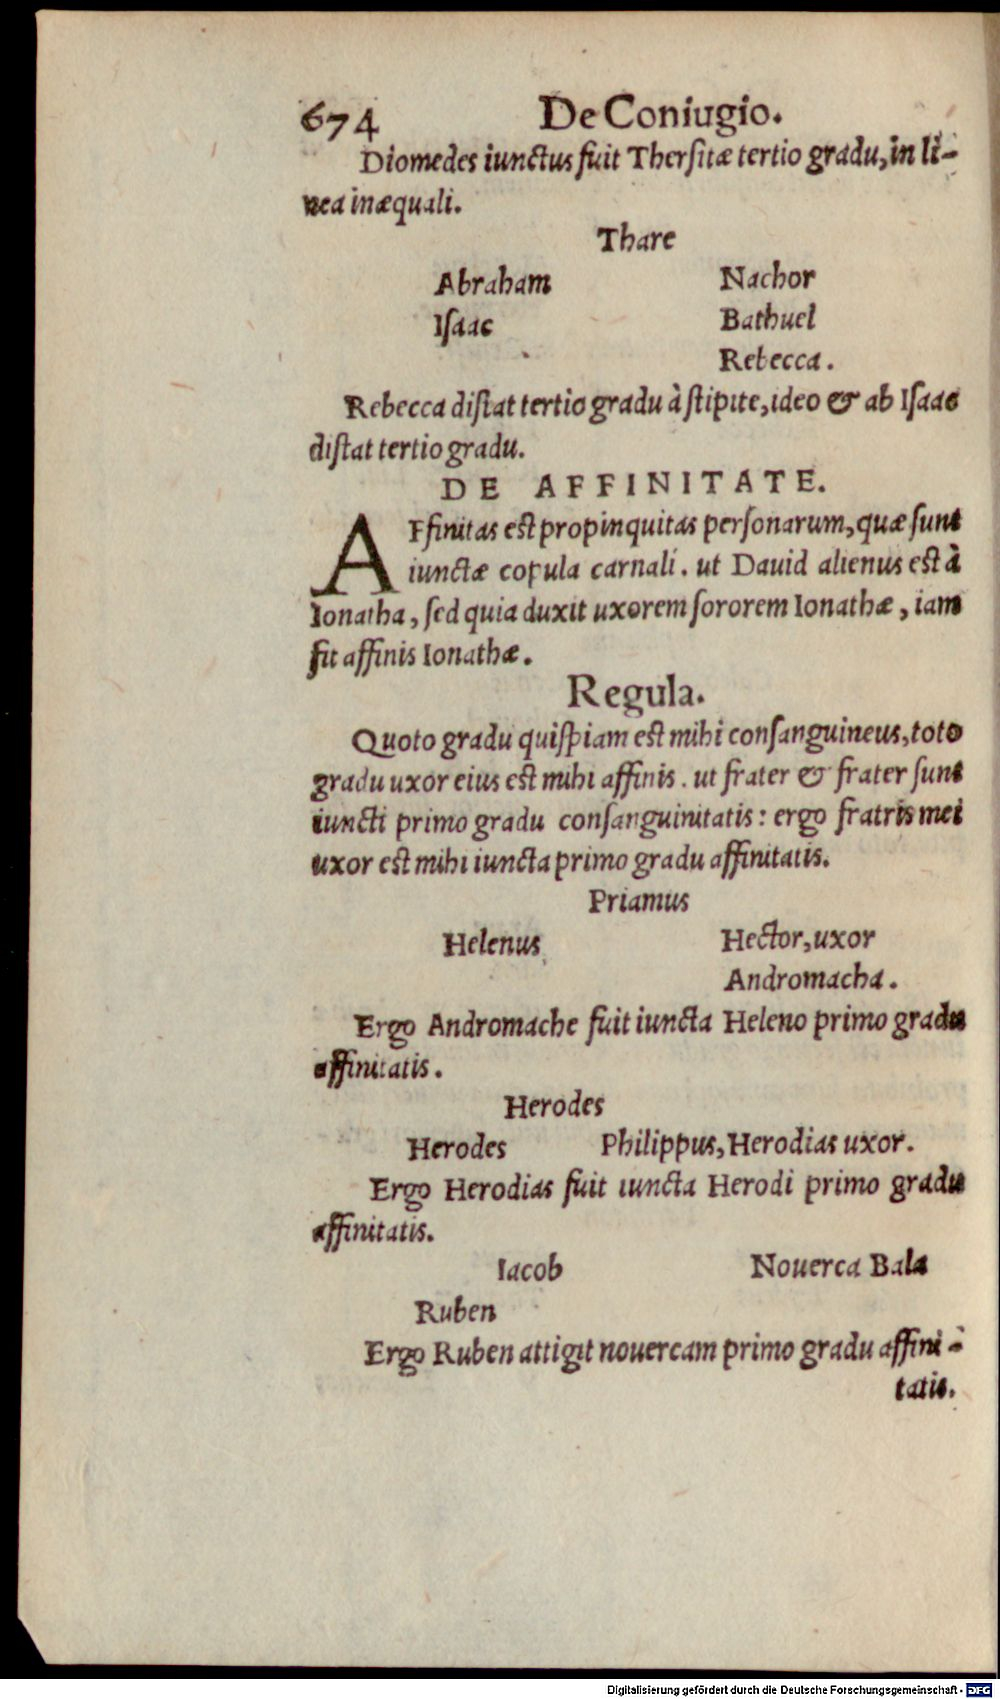 674 De Coniugio.
Diomedes iunctus fuit Thersitæ tertio gradu, in li-
nea inæquali.
Thare
Abraham Nachor
Isaac Bathuel
Rebecca.
Rebecca distat tertio gradu à stipite, ideo & ab Isaac
distat tertio gradu.
DE AFFINITATE.
AFfinitas est propinquitas personarum, quæ sunt
iunctæ copula carnali. ut Dauid alienus est à
Ionatha, sed quia duxit uxorem sororem Ionathæ, iam
fit affinis Ionathæ.
Regula.
Quoto gradu quispiam est mihi consanguineus, toto
gradu uxor eius est mihi affinis. ut frater & frater sunt
iuncti primo gradu consanguinitatis: ergo fratris mei
uxor est mihi iuncta primo gradu affinitatis.
Priamus
Helenus Hector, uxor
Andromacha.
Ergo Andromache fuit iuncta Heleno primo gradu
affinitatis.
Herodes
Herodes Philippus, Herodias uxor.
Ergo Herodias fuit iuncta Herodi primo gradu
affinitatis.
Iacob Nouerca Bala
Ruben
Ergo Ruben attigit nouercam primo gradu affini-
tatis.
Digitalisierung gefördert durch die Deutsche Forschungsgemeinschaft - DFG